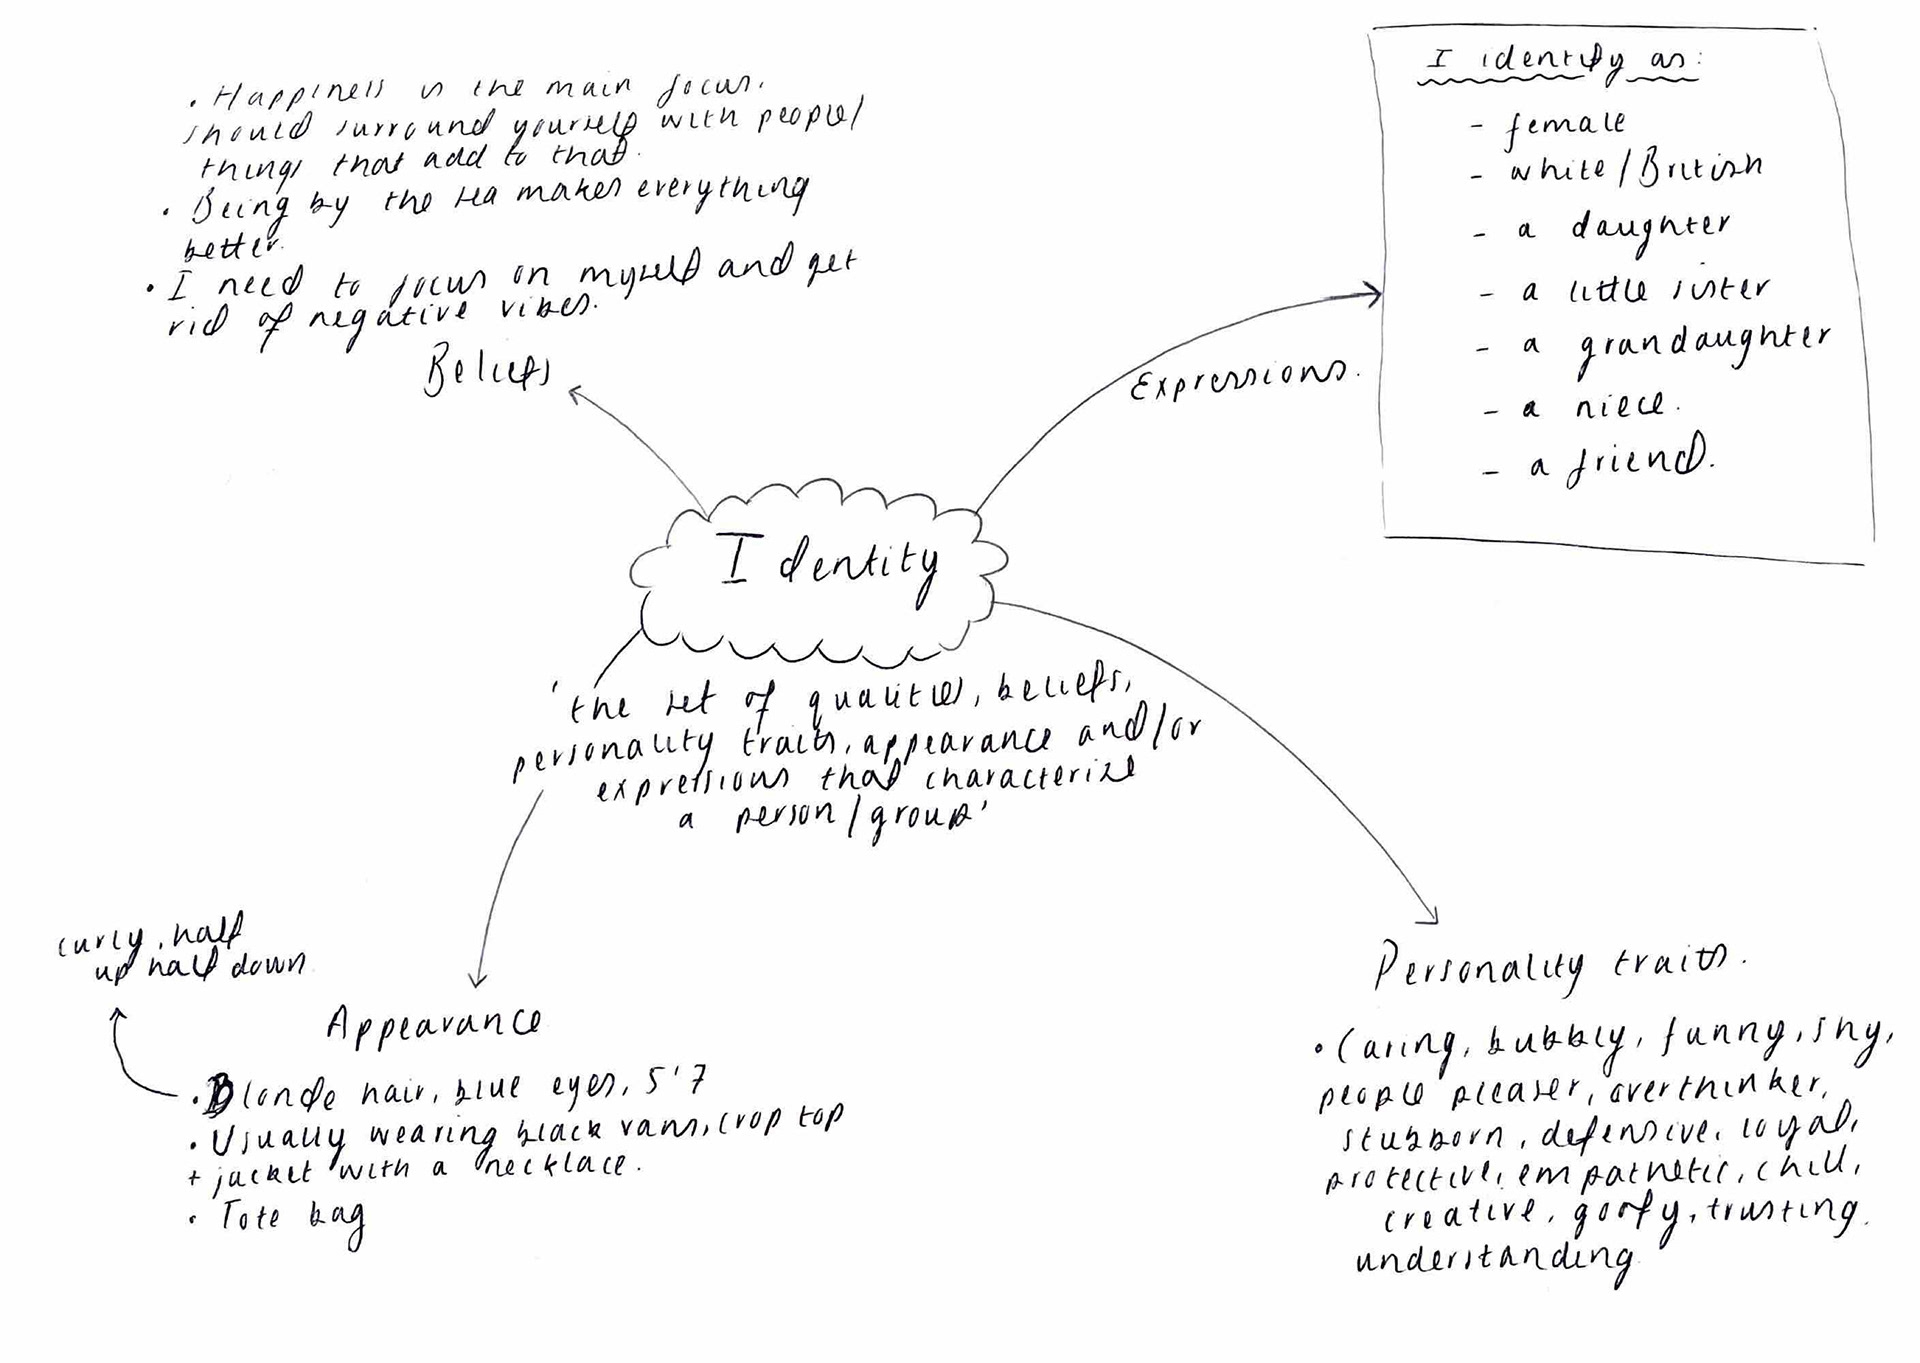 • Happiness is the main focus.
should surround yourself with people/
things that add to that.
• Being by the sea makes everything
better.
• I need to focus on myself and get
rid of negative vibes.
Beliefs
Expressions.
I identify as:
- female
- white/British
- a daughter
- a little sister
- a grandaughter
- a niece.
- a friend.
Identity
'the set of qualities, beliefs,
personality traits, appearance and/or
expressions that characterize
a person/group'
curly, half
up half down
Appearance
• Blonde hair, blue eyes, 5'7
• Usually wearing black vans, crop top
+ jacket with a necklace.
• Tote bag
Personality traits.
• Caring, bubbly, funny, shy,
people pleaser, overthinker,
stubborn, defensive, loyal,
protective, empathetic, chill,
creative, goofy, trusting.
understanding